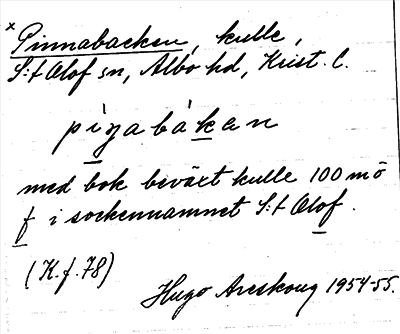 × Pinnabacken, kulle,
S:t Olof sn, Albo hd, Krist. l.
pinabákan
med bok beväxt kulle 100 m ö
f i sockennamnet S:t Olof.
(K.f. 78)
Hugo Areskoug 1954-55.